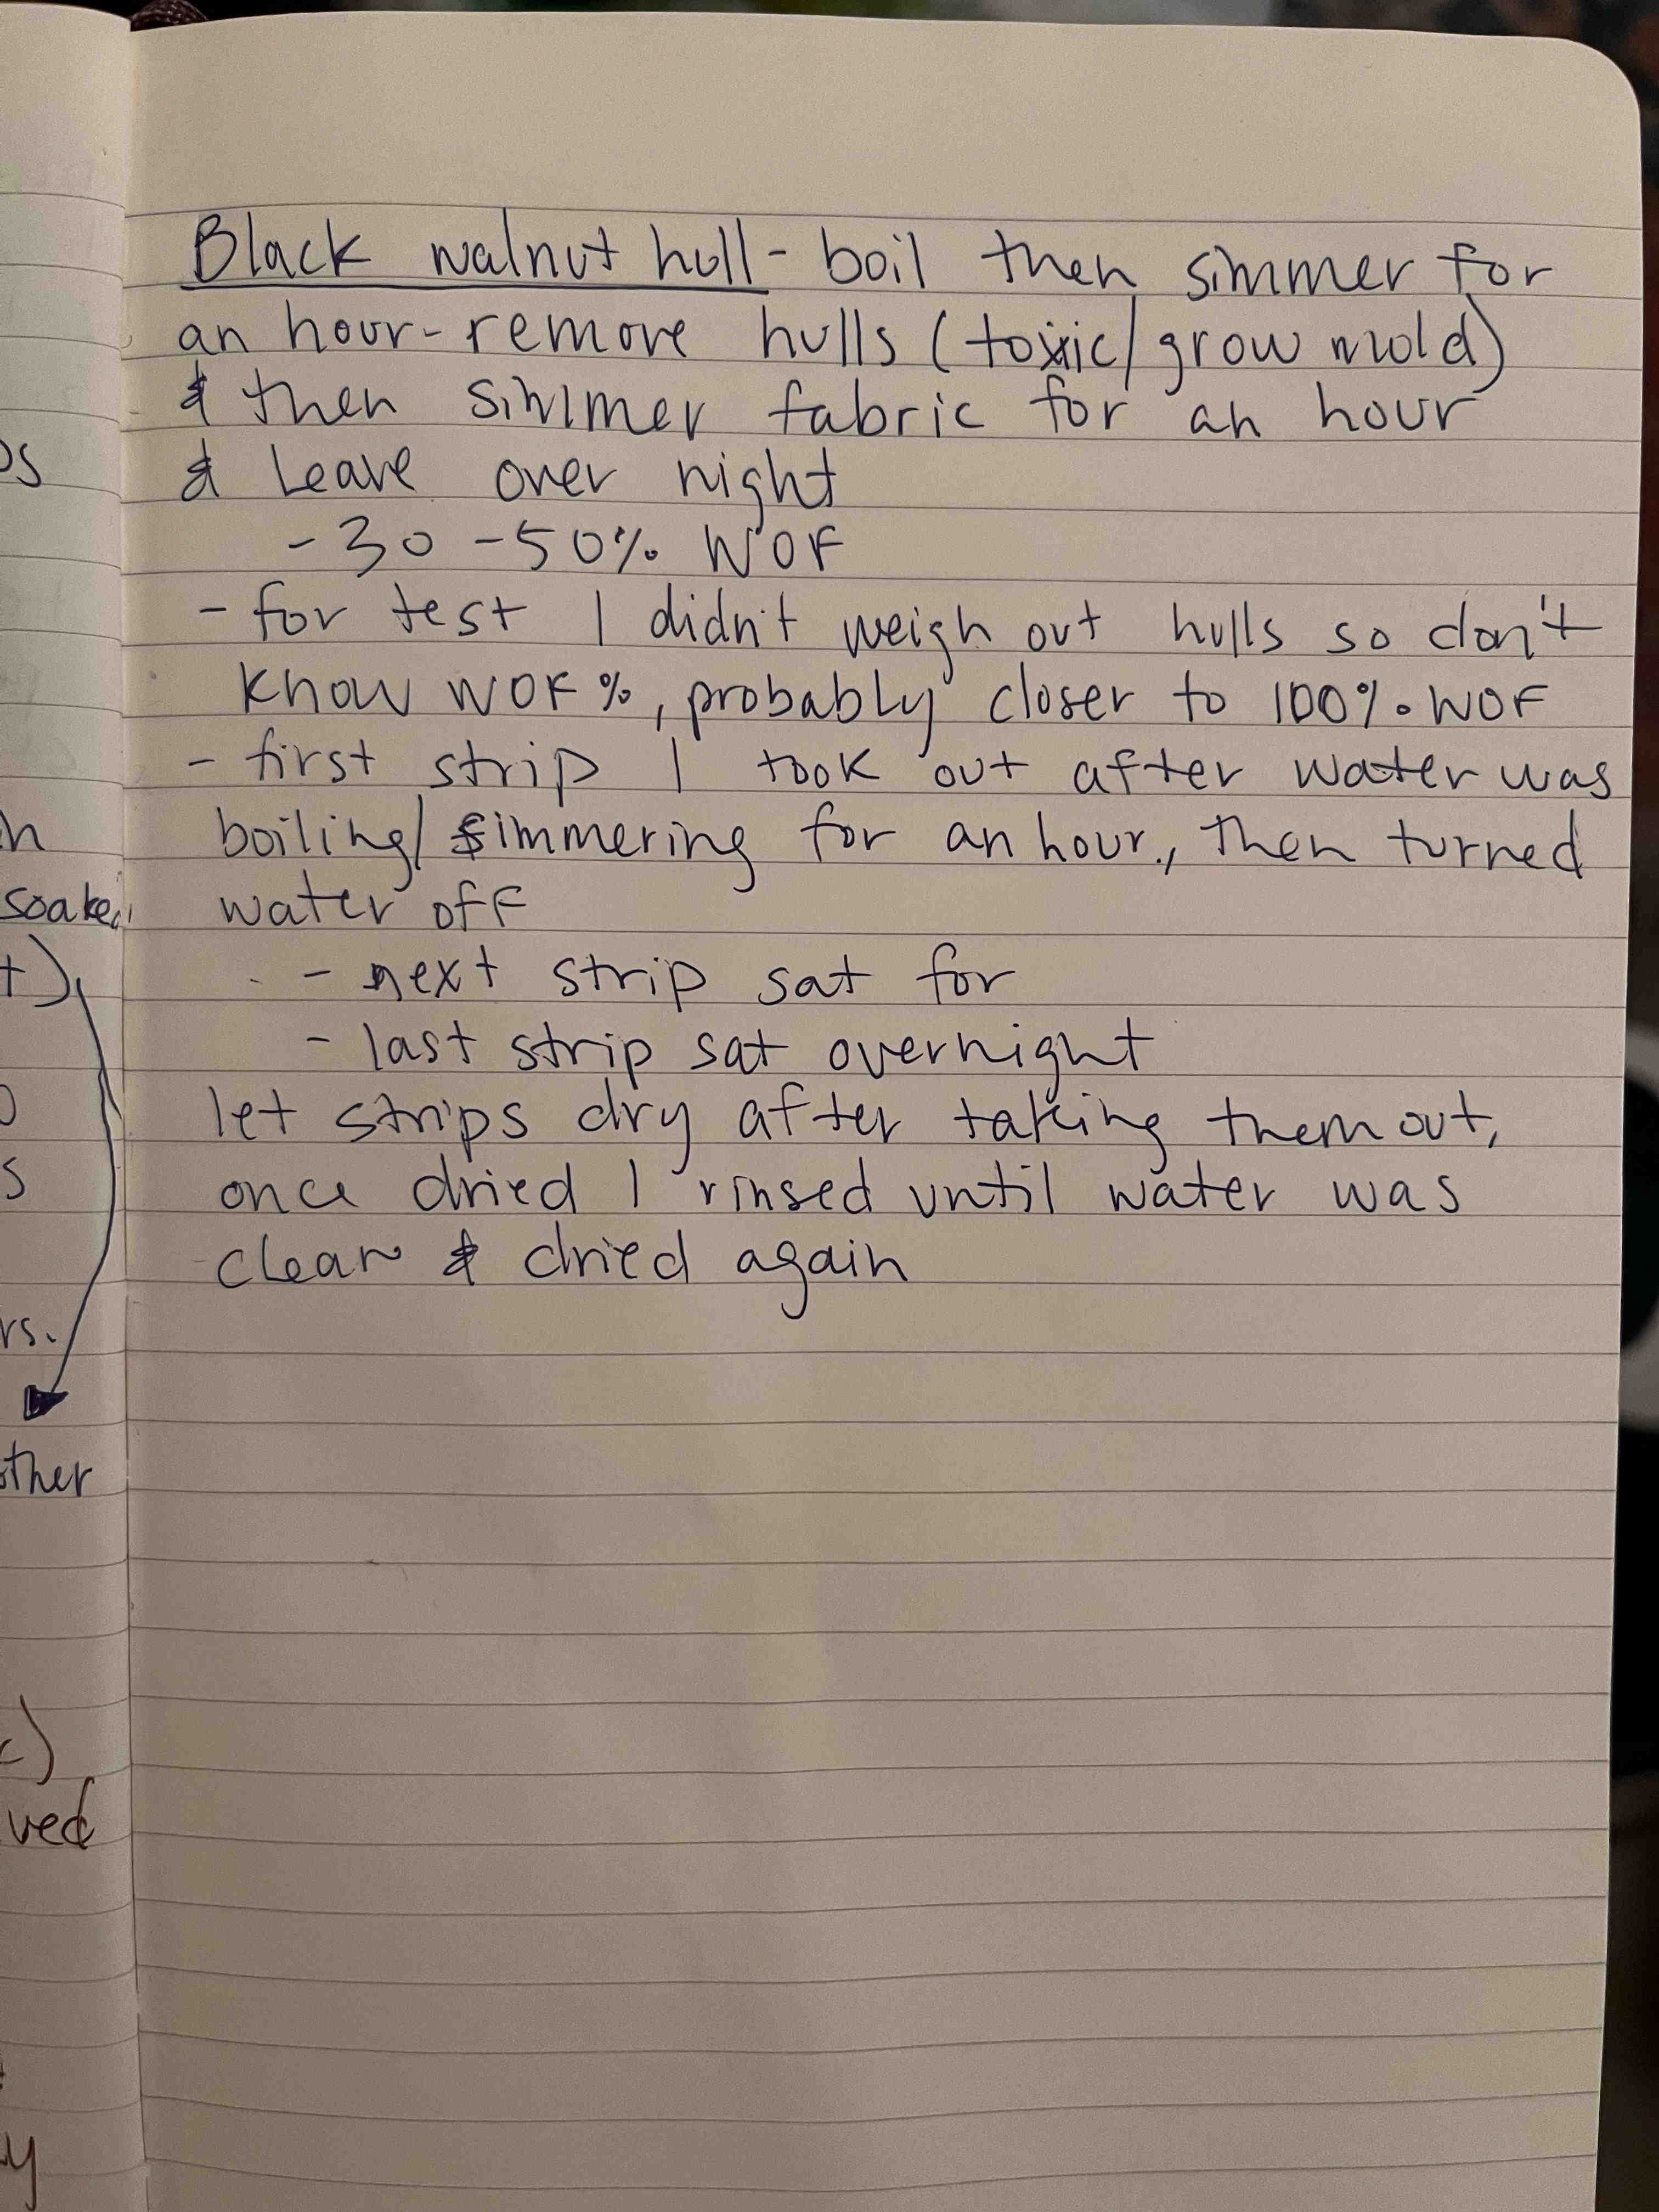 Black walnut hull - boil then simmer for
an hour - remove hulls (toxic/grow mold)
& then simmer fabric for an hour
& leave over night
- 30 - 50% WOF
- for test I didn't weigh out hulls so don't
know WOF %, probably closer to 100% WOF
- first strip I took out after water was
boiling/simmering for an hour, then turned
water off
- next strip sat for
- last strip sat overnight
let strips dry after taking them out,
once dried I rinsed until water was
clear & dried again
soaked
other